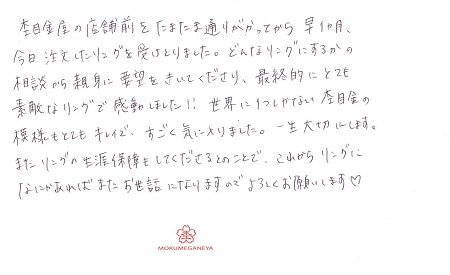 杢目金屋の店舗前をたまたま通りがかってから早1か月、
今日注文したリングを受けとりました。どんなリングにするかの
相談から親身に要望をきいてくださり、最終的にとても
素敵なリングで感動しました!! 世界に1つしかない杢目金の
模様もとてもキレイで、すごく気に入りました。一生大切にします。
またリングの生涯保障もしてくださるとのことで、これからリングに
なにかあればまたお世話になりますのでよろしくお願いします♡
MOKUMEGANEYA